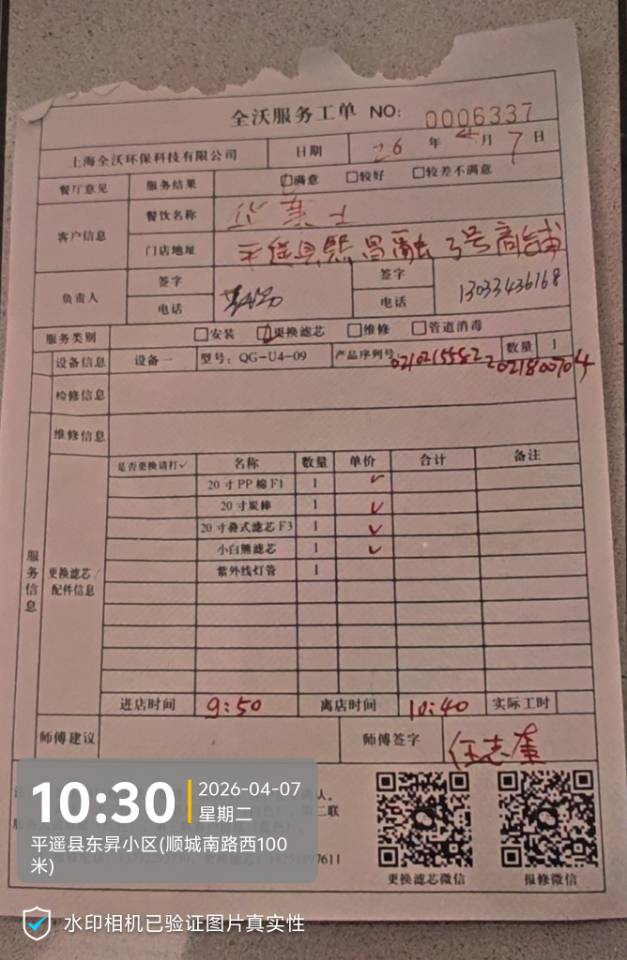 全沃服务工单 NO: 0006337
上海全沃环保科技有限公司 日期 26 年 4 月 7 日
餐厅意见 服务结果 满意 较好 较差不满意
客户信息 餐饮名称
门店地址 平遥县熙昌融3号商铺
负责人 签字 签字
电话 电话 13033436168
服务类别 安装 更换滤芯 维修 管道消毒
设备信息 设备一 型号: QG-U4-09 产品序列号 数量 1
检修信息
维修信息
服务信息
更换滤芯/配件信息
是否更换请打✓ 名称 数量 单价 合计 备注
20寸PP棉F1 1 ✓
20寸炭棒 1 ✓
20寸叠式滤芯F3 1 ✓
小白熊滤芯 1 ✓
紫外线灯管 1
进店时间 9:50 离店时间 10:40 实际工时
师傅建议 师傅签字 任志奎
更换滤芯微信 报修微信
10:30 2026-04-07
星期二
平遥县东昇小区(顺城南路西100
米)
水印相机已验证图片真实性